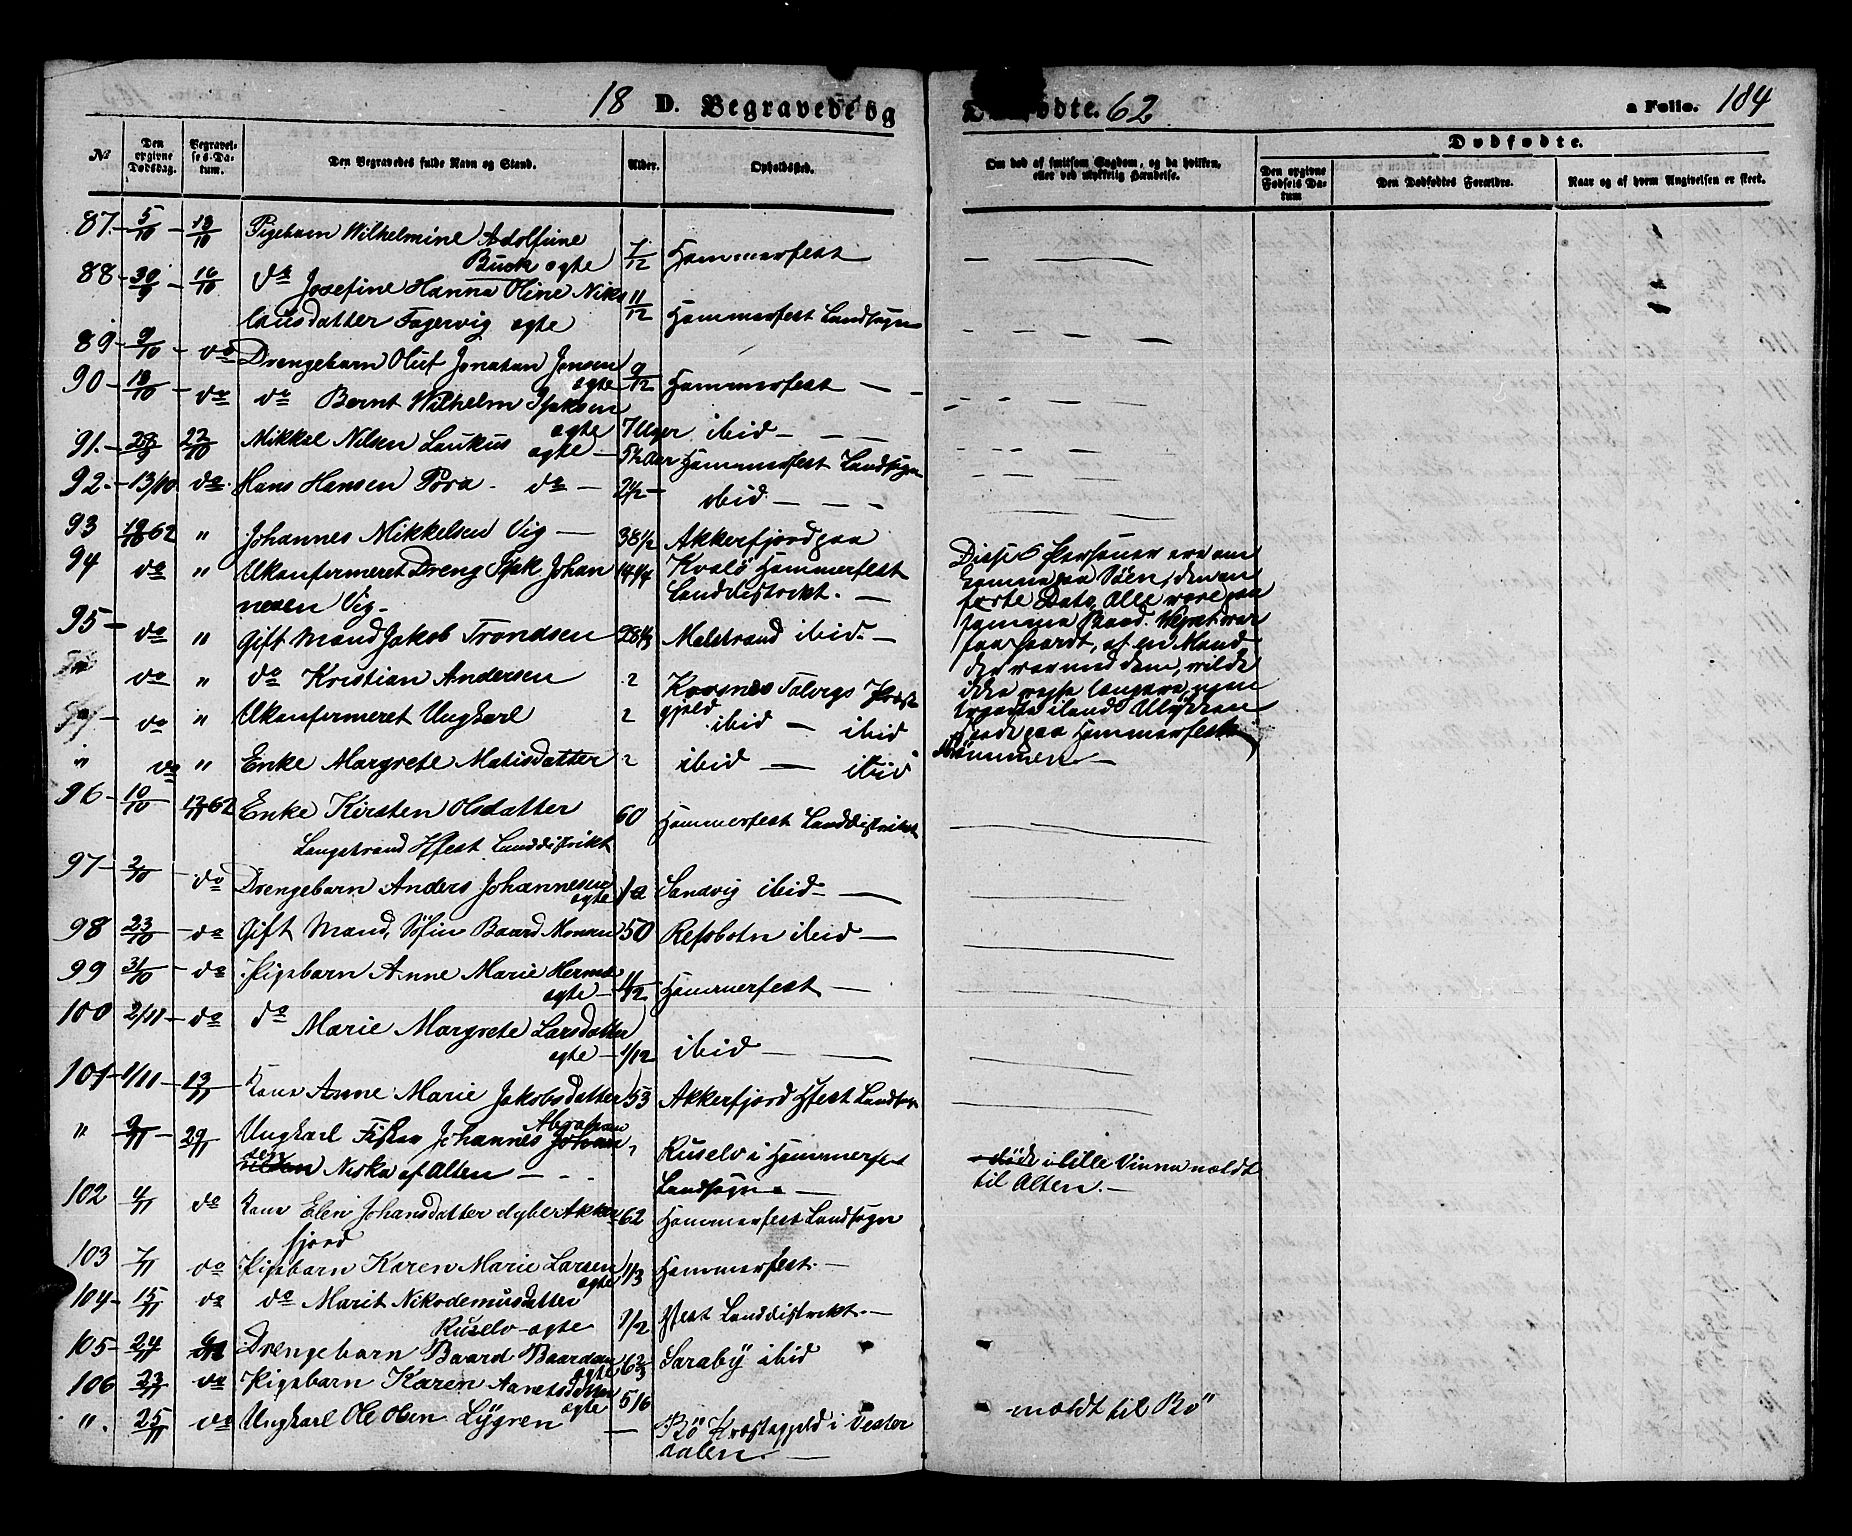 18 D. Begravede og
Dødfødte. 62
a Folio. 184
№
Den opgivne Dødsdag.
Begravelses-Datum.
Den Begravedes fulde Navn og Stand.
Alder.
Opholdssted.
Om død af smitsom Sygdom, og da hvilken, eller ved ulykkelig Hændelse.
Dødfødte.
Den opgivne Fødsels Datum
Den Dødfødtes Forældre.
Naar og af hvem Angivelsen er skeet.
87 - 5/10 - 13/10 Pigebarn Wilhelmine Adolfine
Buck ægte 7/12 Hammerfest
88 - 30/9 - 16/10 do Josefine Hanna Oline Niko
lausdatter Fagervig ægte 11/12 Hammerfest Landsogn
89 - 9/10 - do Drengebarn Oluf Jonatan Jensen
ægte 9/12 Hammerfest
90 - 13/10 - do do Bernt Wilhelm Isaksen
ægte 7 Uger ibid
91. - 28/9 22/10 Mikkel Nilsen Laukus ægte - 5½ Aar Hammerfest Landsogn
92. - 13/10 do. Hans Hansen Pora - do - 2½ - ibid -
93 19/10 62 " Johannes Mikkelsen Vig - 38 1/2 Akkerfjord paa
94 do " Ukonfirmeret Dreng Isak Johan 14 1/4 Kvalö Hammerfest
nesen Vig - Landdistrikt. -
95 - do " Gift Mand Jakob Trondsen 28 1/3 Melstrand ibid. -
" do " do Kristian Andersen ? Korsnes Talvigs Præste
gjeld
" - do " Ukonfirmeret Ungkarl ? ibid - ibid
" do " Enke Margrete Matisdatter ? ibid - ibid
Disse Personer ere om
komne paa Söen, den an
förte Dato, Alle vare paa
samme Baad. Vejret var
saa haardt, at en Mand
der var med dem, vilde
ikke rejse længere, men
iland Ulykken
skede paa Hammerfest
Strömmen. -
96 - 10/10 - 12/11 62 Enke Kirsten Olsdatter
Langstrand Hfest Landdistrikt 60 Hammerfest Landdistrikt
97 - 2/10 - do Drengebarn Anders Johannesen
ægte 1 a Sandvig ibid -
98 23/10 - do Gift Mand, Söfin Baard Monsen 50 Refsbotn ibid -
99 31/10 - do Pigebarn Anne Marie Herma
ægte - 1/12 Hammerfest -
100 2/11 - do do Marie Margrete Larsdatter
ægte - 1/12 ibid -
101 - 1/11 - 13/11 Kone Anne Marie Jakobsdatter 53 Akkerfjord Hfest Landsogn
" 9/11 - 29/11 Ungkarl Fisker Johannes Abraham
sen Niska af Alten - ? Ruselv i Hammerfest
Landsogn -
- döde i Lille Vinna meldt
til Alten. -
102 4/11 do Kone Elen Johansdatter dyber Akker
fjord 62 Hammerfest Landsogn
103 7/11 do Pigebarn Karen Marie Larsen
ægte 1/3 Hammerfest. -
104 - 15/11 do do Marit Nikodemusdatter
Ruselv - ægte 1/2 Hfest Landdistrikt. -
105 - 24/11 do Drengebarn Baard Baardsen
ægte 6 2/3 Saraby ibid
106 23/11 do Pigebarn Karen
ægte 5/6
". 25/11 do Ungkarl Ole Olsen Lÿgren - Bö Præstegjeld i Vester
aalen. -
- meldt til Bö